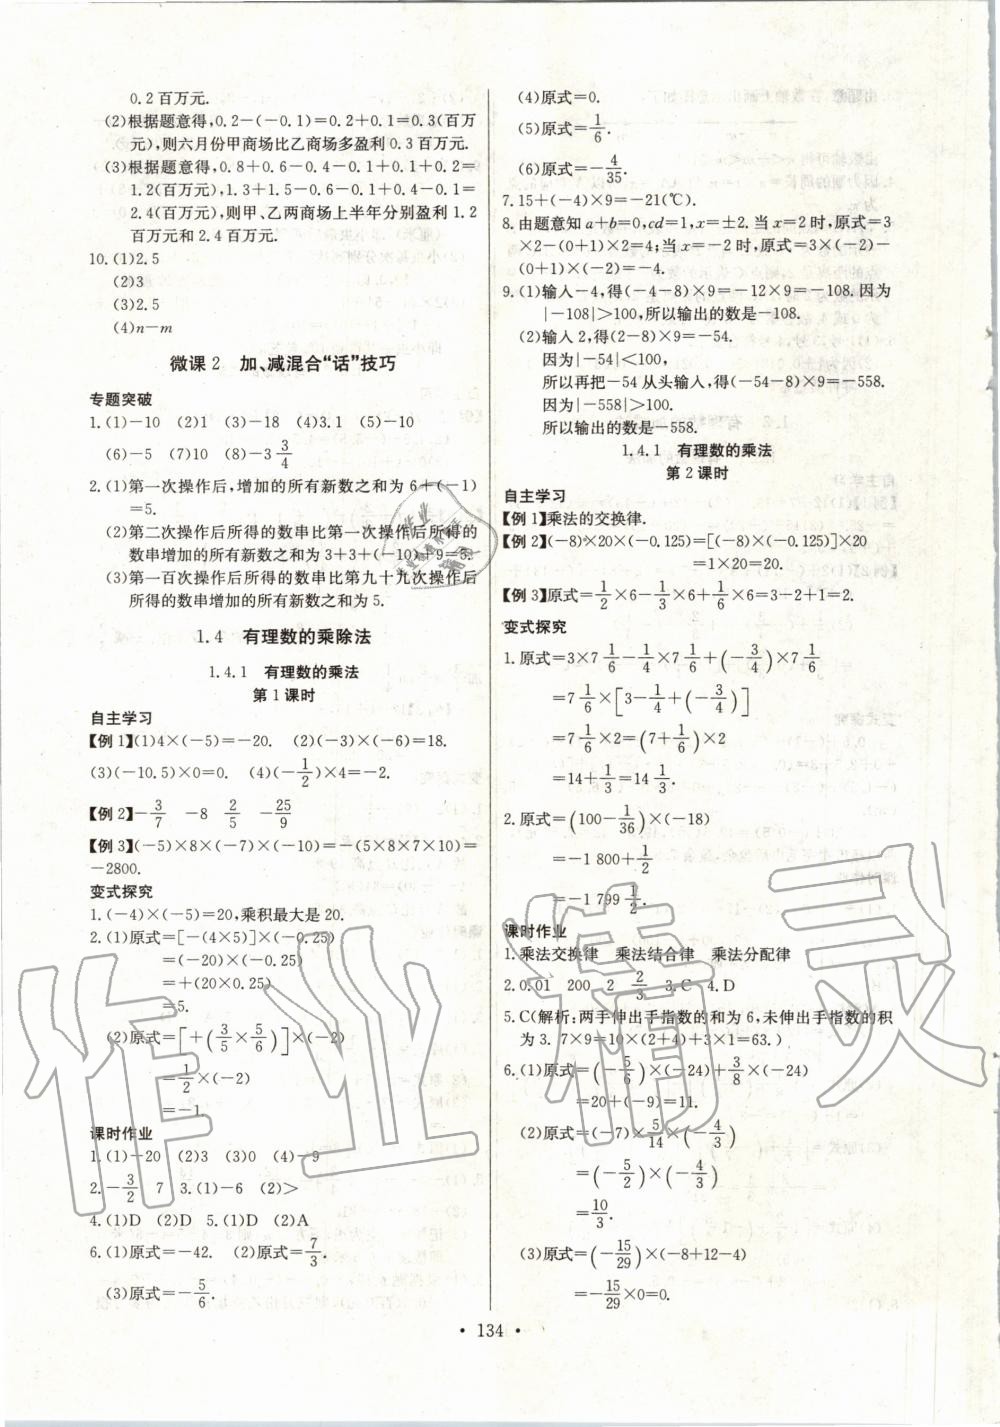 0.2百万元.
(2)根据题意得,0.2-(-0.1)=0.2+0.1=0.3(百万
元),则六月份甲商场比乙商场多盈利0.3百万元.
(3)根据题意得,0.8+0.6-0.4-0.1+0.1+0.2=
1.2(百万元),1.3+1.5-0.6-0.1+0.4-0.1=
2.4(百万元),则甲、乙两商场上半年分别盈利1.2
百万元和2.4百万元.
10.(1)2.5
(2)3
(3)2.5
(4)n-m
微课2 加、减混合“话”技巧
专题突破
1.(1)-10 (2)1 (3)-18 (4)3.1 (5)-10
(6)-5 (7)10 (8)-3 3/4
2.(1)第一次操作后,增加的所有新数之和为6+(-1)
=5.
(2)第二次操作后所得的数串比第一次操作后所得的
数串增加的所有新数之和为3+3+(-10)+9=5.
(3)第一百次操作后所得的数串比第九十九次操作后
所得的数串增加的所有新数之和为5.
1.4 有理数的乘除法
1.4.1 有理数的乘法
第1课时
自主学习
【例1】(1)4×(-5)=-20. (2)(-3)×(-6)=18.
(3)(-10.5)×0=0. (4)(-1/2)×4=-2.
【例2】-3/7 -8 2/5 -25/9
【例3】(-5)×8×(-7)×(-10)=-(5×8×7×10)=
-2800.
变式探究
1.(-4)×(-5)=20,乘积最大是20.
2.(1)原式=[-(4×5)]×(-0.25)
=(-20)×(-0.25)
=+(20×0.25)
=5.
(2)原式=[+(3/5×5/6)]×(-2)
=1/2×(-2)
=-1.
课时作业
1.(1)-20 (2)3 (3)0 (4)-9
2.-3/2 7 3.(1)-6 (2)>
4.(1)D (2)D 5.(1)D (2)A
6.(1)原式=-42. (2)原式=7/3.
(3)原式=-5/6.
(4)原式=0.
(5)原式=1/6.
(6)原式=-4/35.
7.15+(-4)×9=-21(℃).
8.由题意知a+b=0,cd=1,x=±2.当x=2时,原式=3
×2-(0+1)×2=4;当x=-2时,原式=3×(-2)-
(0+1)×(-2)=-4.
9.(1)输入-4,得(-4-8)×9=-12×9=-108.因为
|-108|>100,所以输出的数是-108.
(2)输入2,得(2-8)×9=-54.
因为|-54|<100,
所以再把-54从头输入,得(-54-8)×9=-558.
因为|-558|>100.
所以输出的数是-558.
1.4.1 有理数的乘法
第2课时
自主学习
【例1】乘法的交换律.
【例2】(-8)×20×(-0.125)=[(-8)×(-0.125)]×20
=1×20=20.
【例3】原式=1/2×6-1/3×6+1/6×6=3-2+1=2.
变式探究
1.原式=3×7 1/6-1/4×7 1/6+(-3/4)×7 1/6
=7 1/6×[3-1/4+(-3/4)]
=7 1/6×2=(7+1/6)×2
=14+1/3=14 1/3.
2.原式=(100-1/36)×(-18)
=-1 800+1/2
=-1 799 1/2.
课时作业
1.乘法交换律 乘法结合律 乘法分配律
2.0.01 200 2 2/3 3.C 4.D
5.C(解析:两手伸出手指数的和为6,未伸出手指数的积
为3.7×9=10×(2+4)+3×1=63.)
6.(1)原式=(-5/6)×(-24)+3/8×(-24)
=20+(-9)=11.
(2)原式=(-7)×5/14×(-4/3)
=(-5/2)×(-4/3)
=10/3.
(3)原式=(-15/29)×(-8+12-4)
=-15/29×0=0.
• 134 •
作业精灵